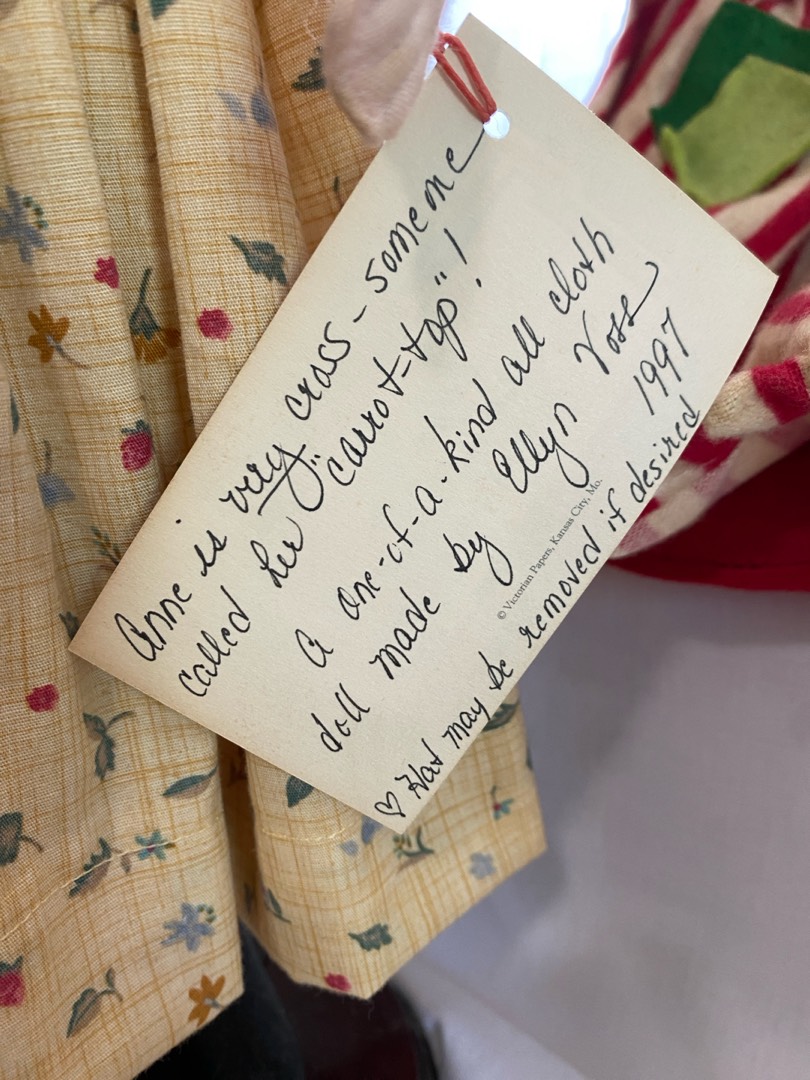 Anne is very cross - someone
called her "carrot-top"!
A one-of-a-kind all cloth
doll made by Ellyn Voss
1997
© Victorian Papers, Kansas City, Mo.
♡ Hat may be removed if desired